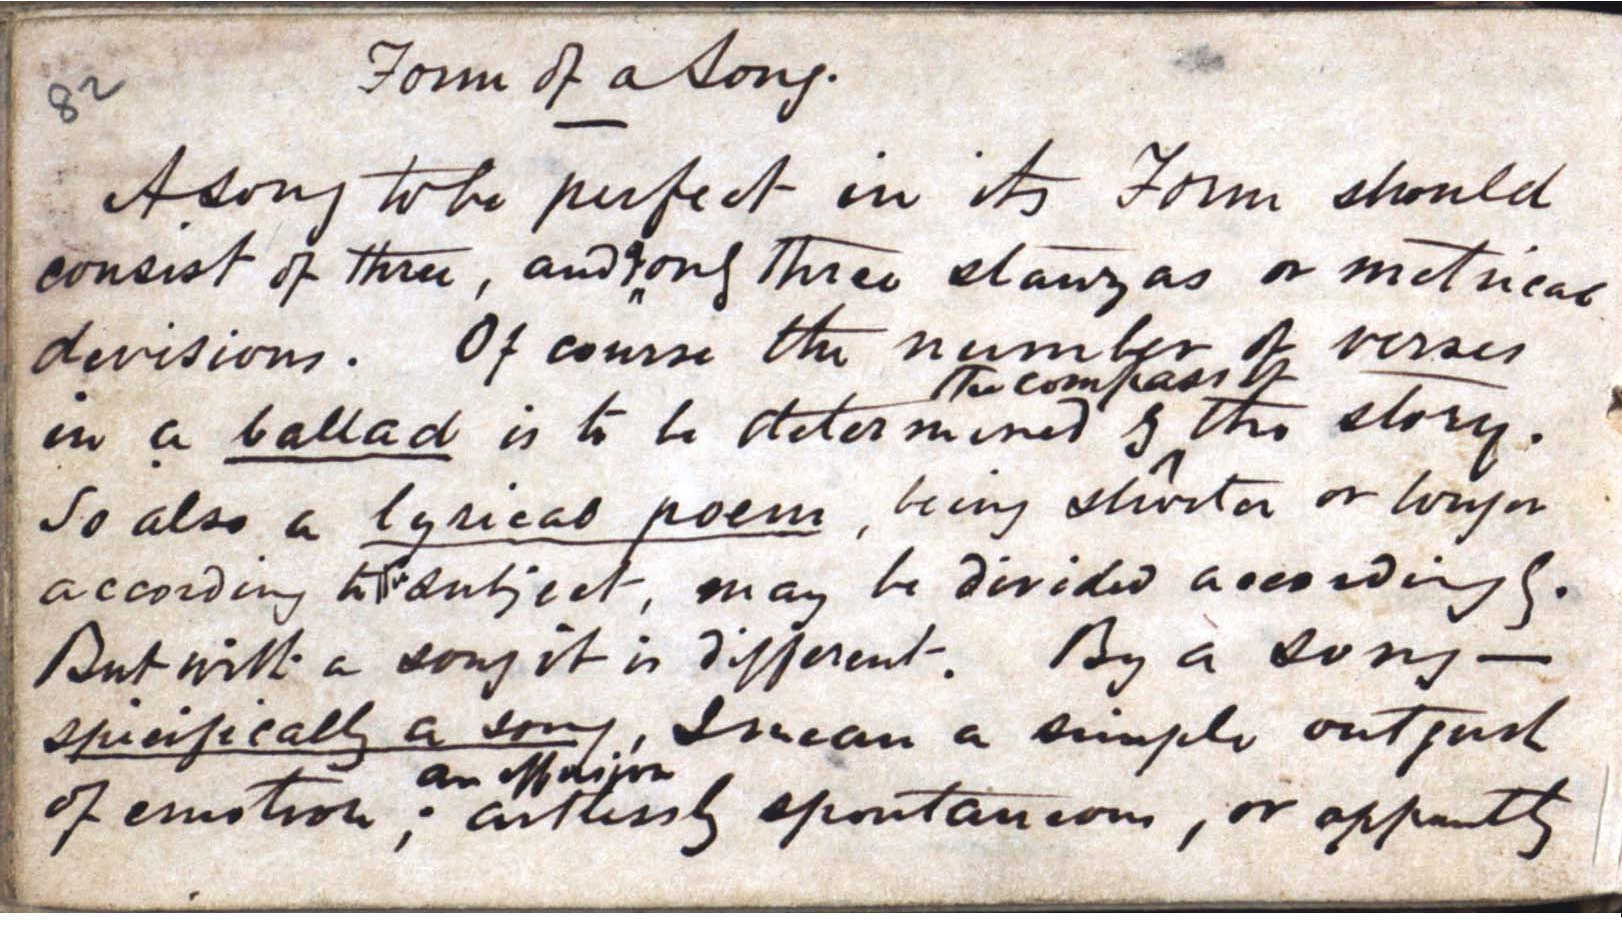 82
Form of a Song.
A song to be perfect in its Form should
consist of three, and only three stanzas or metrical
devisions. Of course the number of verses
the compass of
in a ballad is to be determined by the story.
So also a lyrical poem, being shorter or longer
according to its subject, may be divided accordingly.
But with a song it is different. By a song—
specifically a song, I mean a simple outgush
an effusion
of emotion; artlessly spontaneous, or appartly